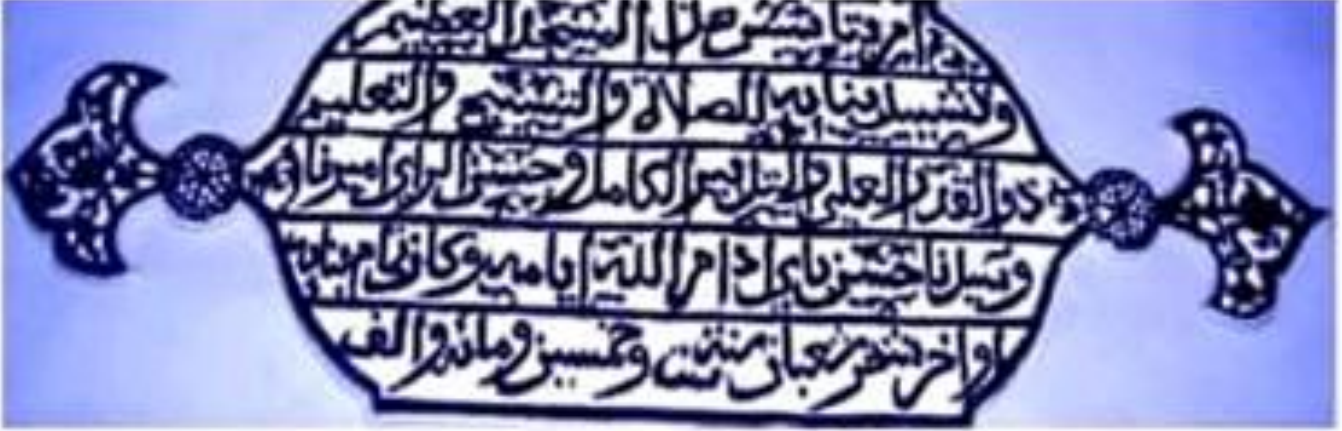 أمر بتأسيس هذا المسجد العظيم
وتشييد بنائه للصلاة والتسبيح والتعليم
ذو القدر العلي والتدبير الكامل وحسن الراي أميرنا
وسيدنا حسن باي ادام الله أيامه وكان تمام بنائه
أواخر شهر شعبان سنة ست وخمسين ومائة والف